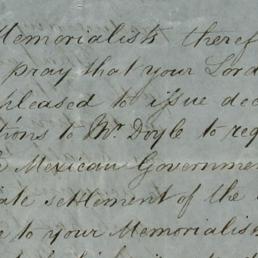 Memorialists theref
pray that your Lord
pleased to issue dec
tions to Mr. Doyle to req
Mexican Governmen
ate settlement of the
e to your Memorialist